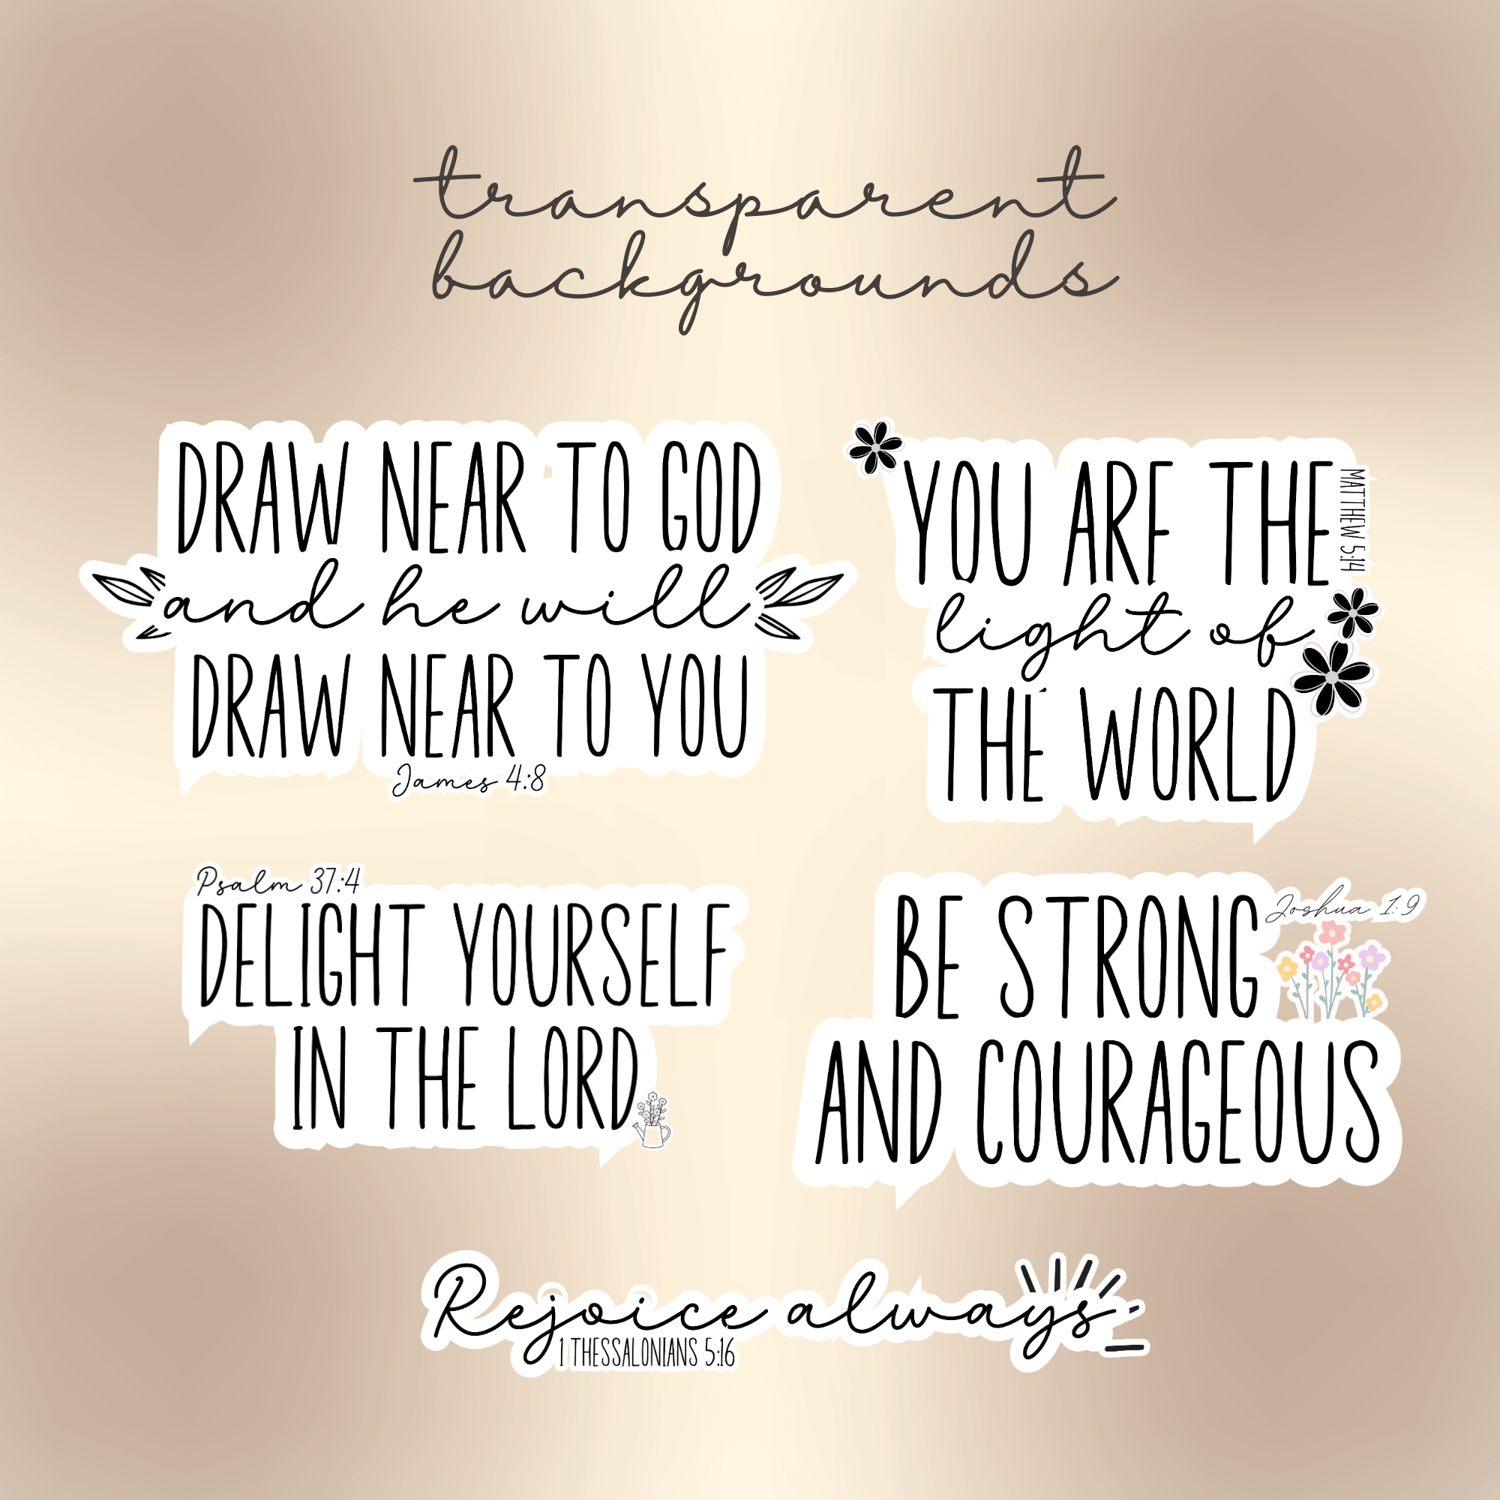 transparent
backgrounds
DRAW NEAR TO GOD
and he will
DRAW NEAR TO YOU
James 4:8
YOU ARE THE
MATTHEW 5:14
light of
THE WORLD
Psalm 37:4
DELIGHT YOURSELF
IN THE LORD
BE STRONG
Joshua 1:9
AND COURAGEOUS
Rejoice always
1 THESSALONIANS 5:16